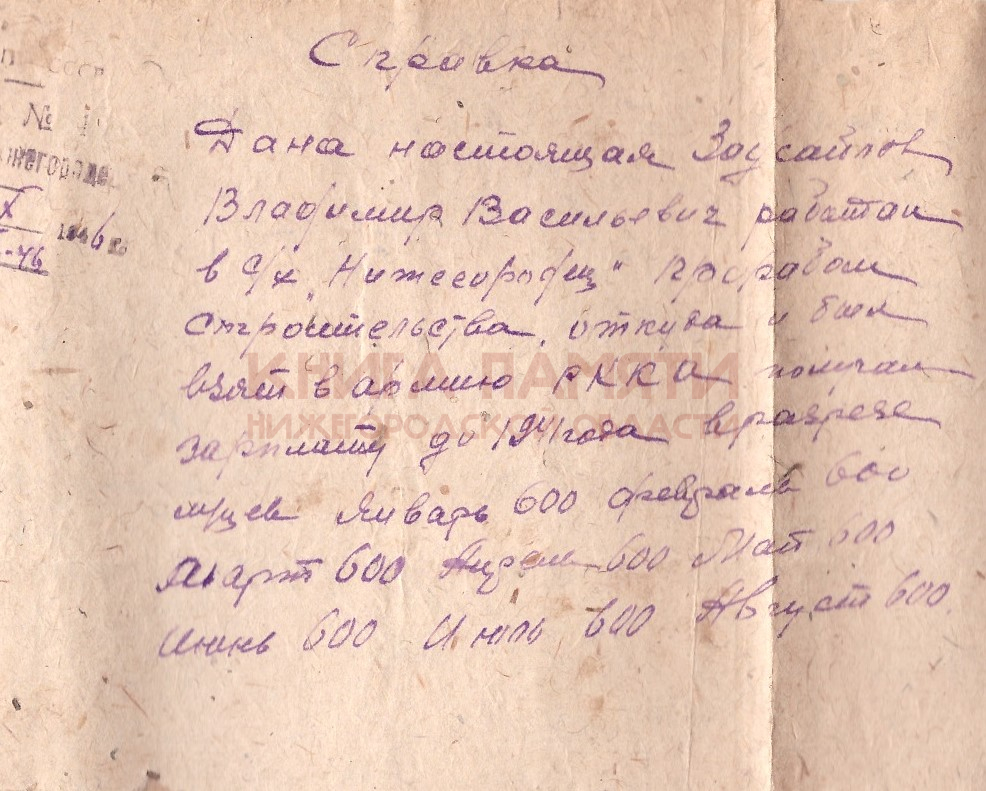 Справка
СССР
№ 1
Дана настоящая
Владимир Васильевич работал
в с/х „Нижегородец" прорабом
строительства, откуда и был
взят в армию РККА получал
зарплату до 1941 года в разрезе
м-цев Январь 600 февраль 600
Март 600 Апрель 600 Май 600
Июнь 600 Июль 600 Август 600
X
1946
КНИГА ПАМЯТИ
НИЖЕГОРОДСКОЙ ОБЛАСТИ